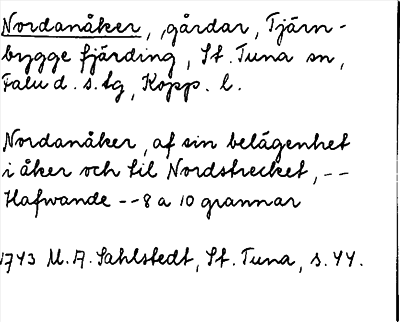 Nordanåker, gårdar, Tjärn-
bygge fjärding, St. Tuna sn,
Falu d. s. tg, Kopp. l.
Nordanåker, af sin belägenhet
i åker och til Nordstrecket, --
Hafwande -- 8 a 10 grannar
1743 U. A. Sahlstedt, St. Tuna, s. 44.